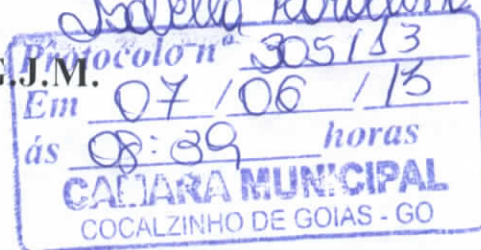 Isabella
Protocolo nº 305/13
G.J.M.
Em 07/06/13
ás 08:39 horas
CAMARA MUNICIPAL
COCALZINHO DE GOIAS - GO